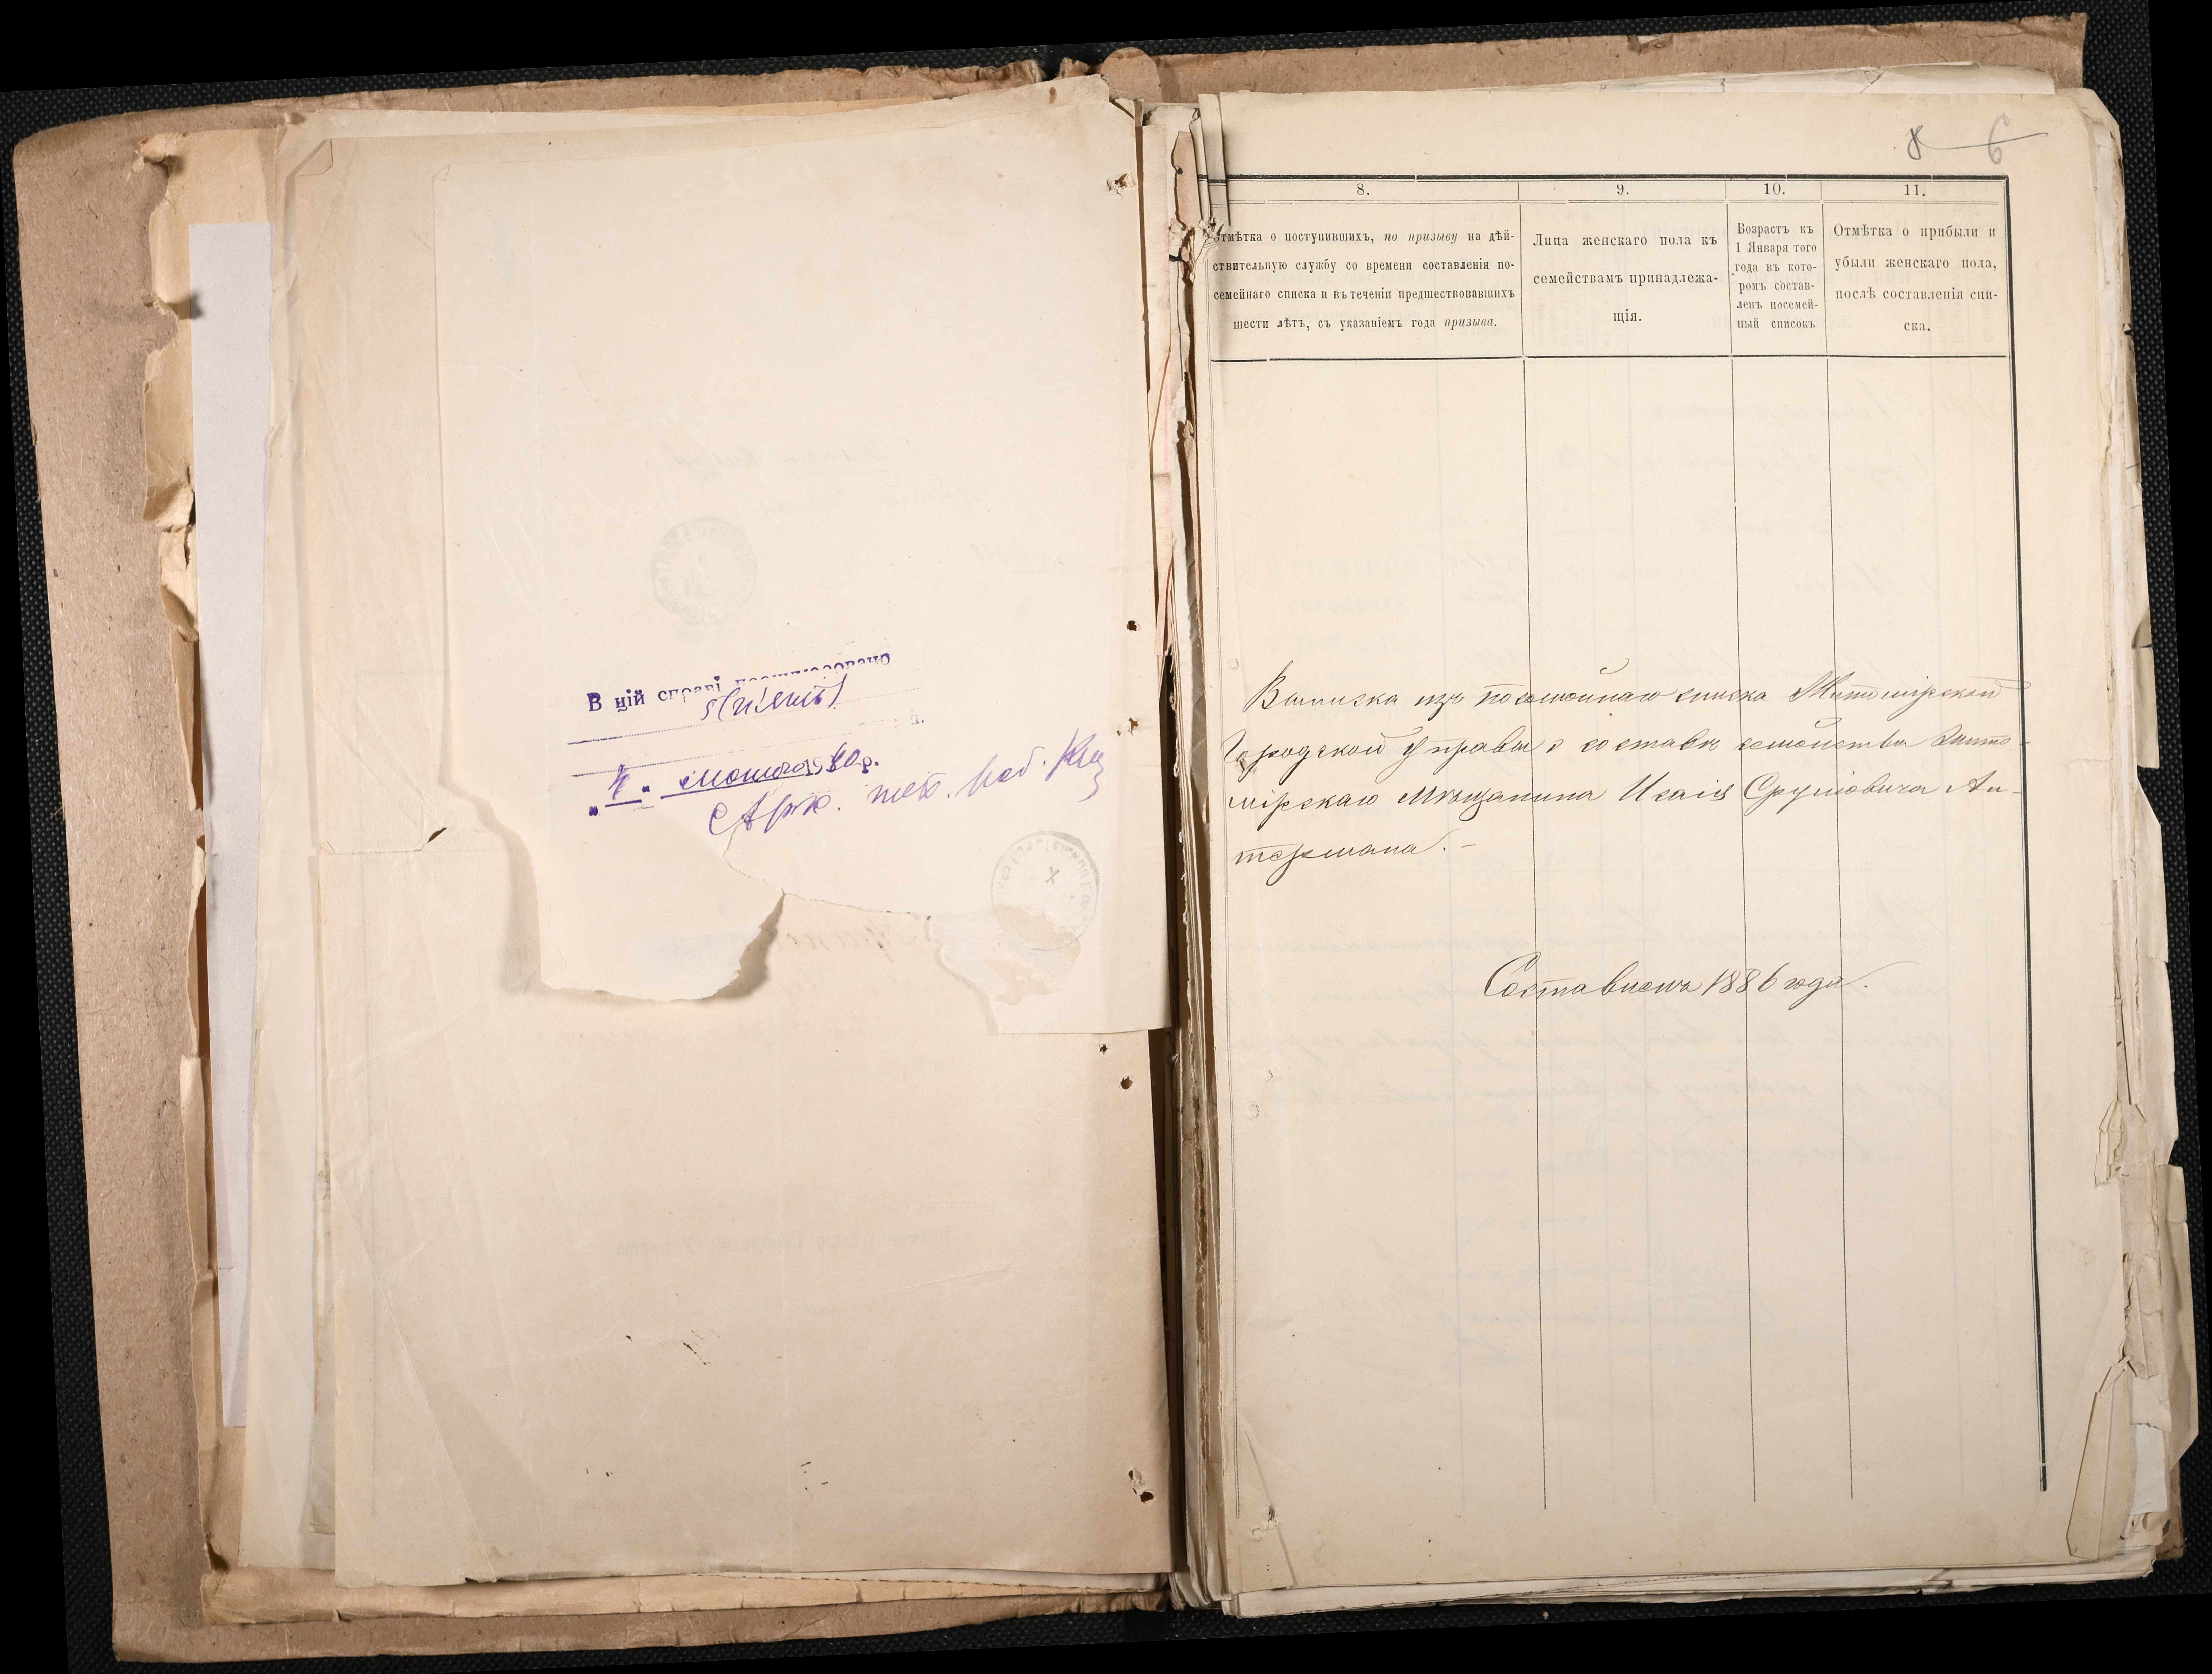 В цій справі
5 (п'ять)
"4" лютого 1940 р.
Арх. тех.
8 6
8.
9.
10.
11.
Отмѣтка о поступившихъ, по призыву на дѣй-
ствительную службу со времени составленія по-
семейнаго списка и въ теченіи предшествовавшихъ
шести лѣтъ, съ указаніемъ года призыва.
Лица женскаго пола къ
семействамъ принадлежа-
щія.
Возрастъ къ
1 Января того
года въ кото-
ромъ состав-
ленъ посемей-
ный списокъ
Отмѣтка о прибыли и
убыли женскаго пола,
послѣ составленія спи-
ска.
Выписка изъ посемейнаго списка Житомірской
Городской Управы о составѣ семейства Жито-
мірскаго Мѣщанина Исаія Сруліовича Ан-
термана. –
Составленъ 1886 года.